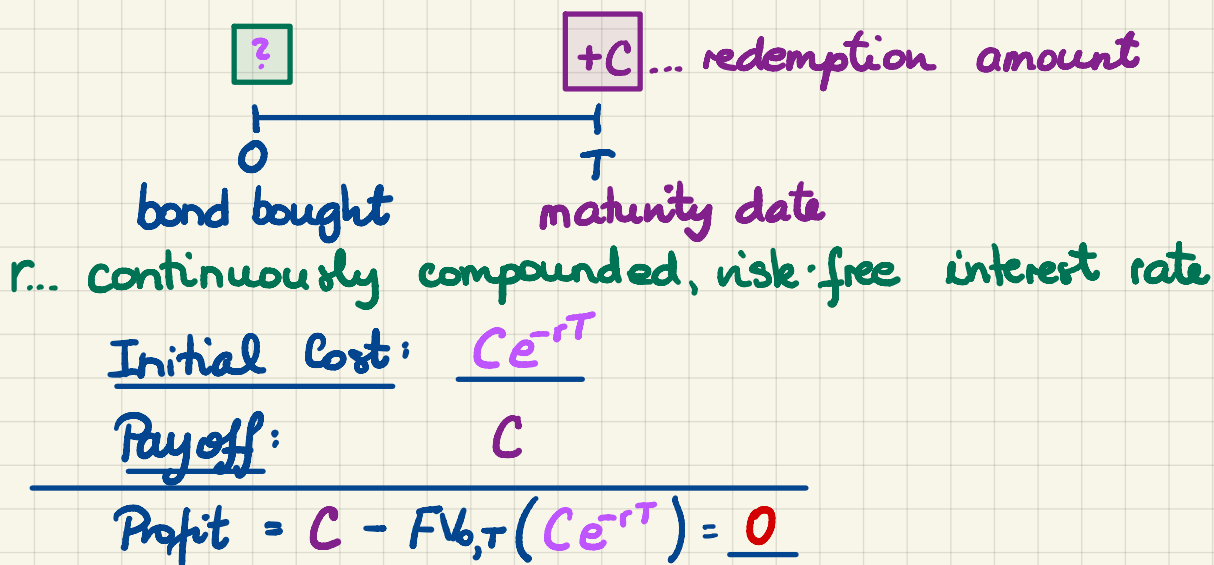 ? +C ... redemption amount
0 T
bond bought maturity date
r... continuously compounded, risk-free interest rate
Initial Cost: Ce^{-rT}
Payoff: C
Profit = C - FV_{0,T}(Ce^{-rT}) = 0